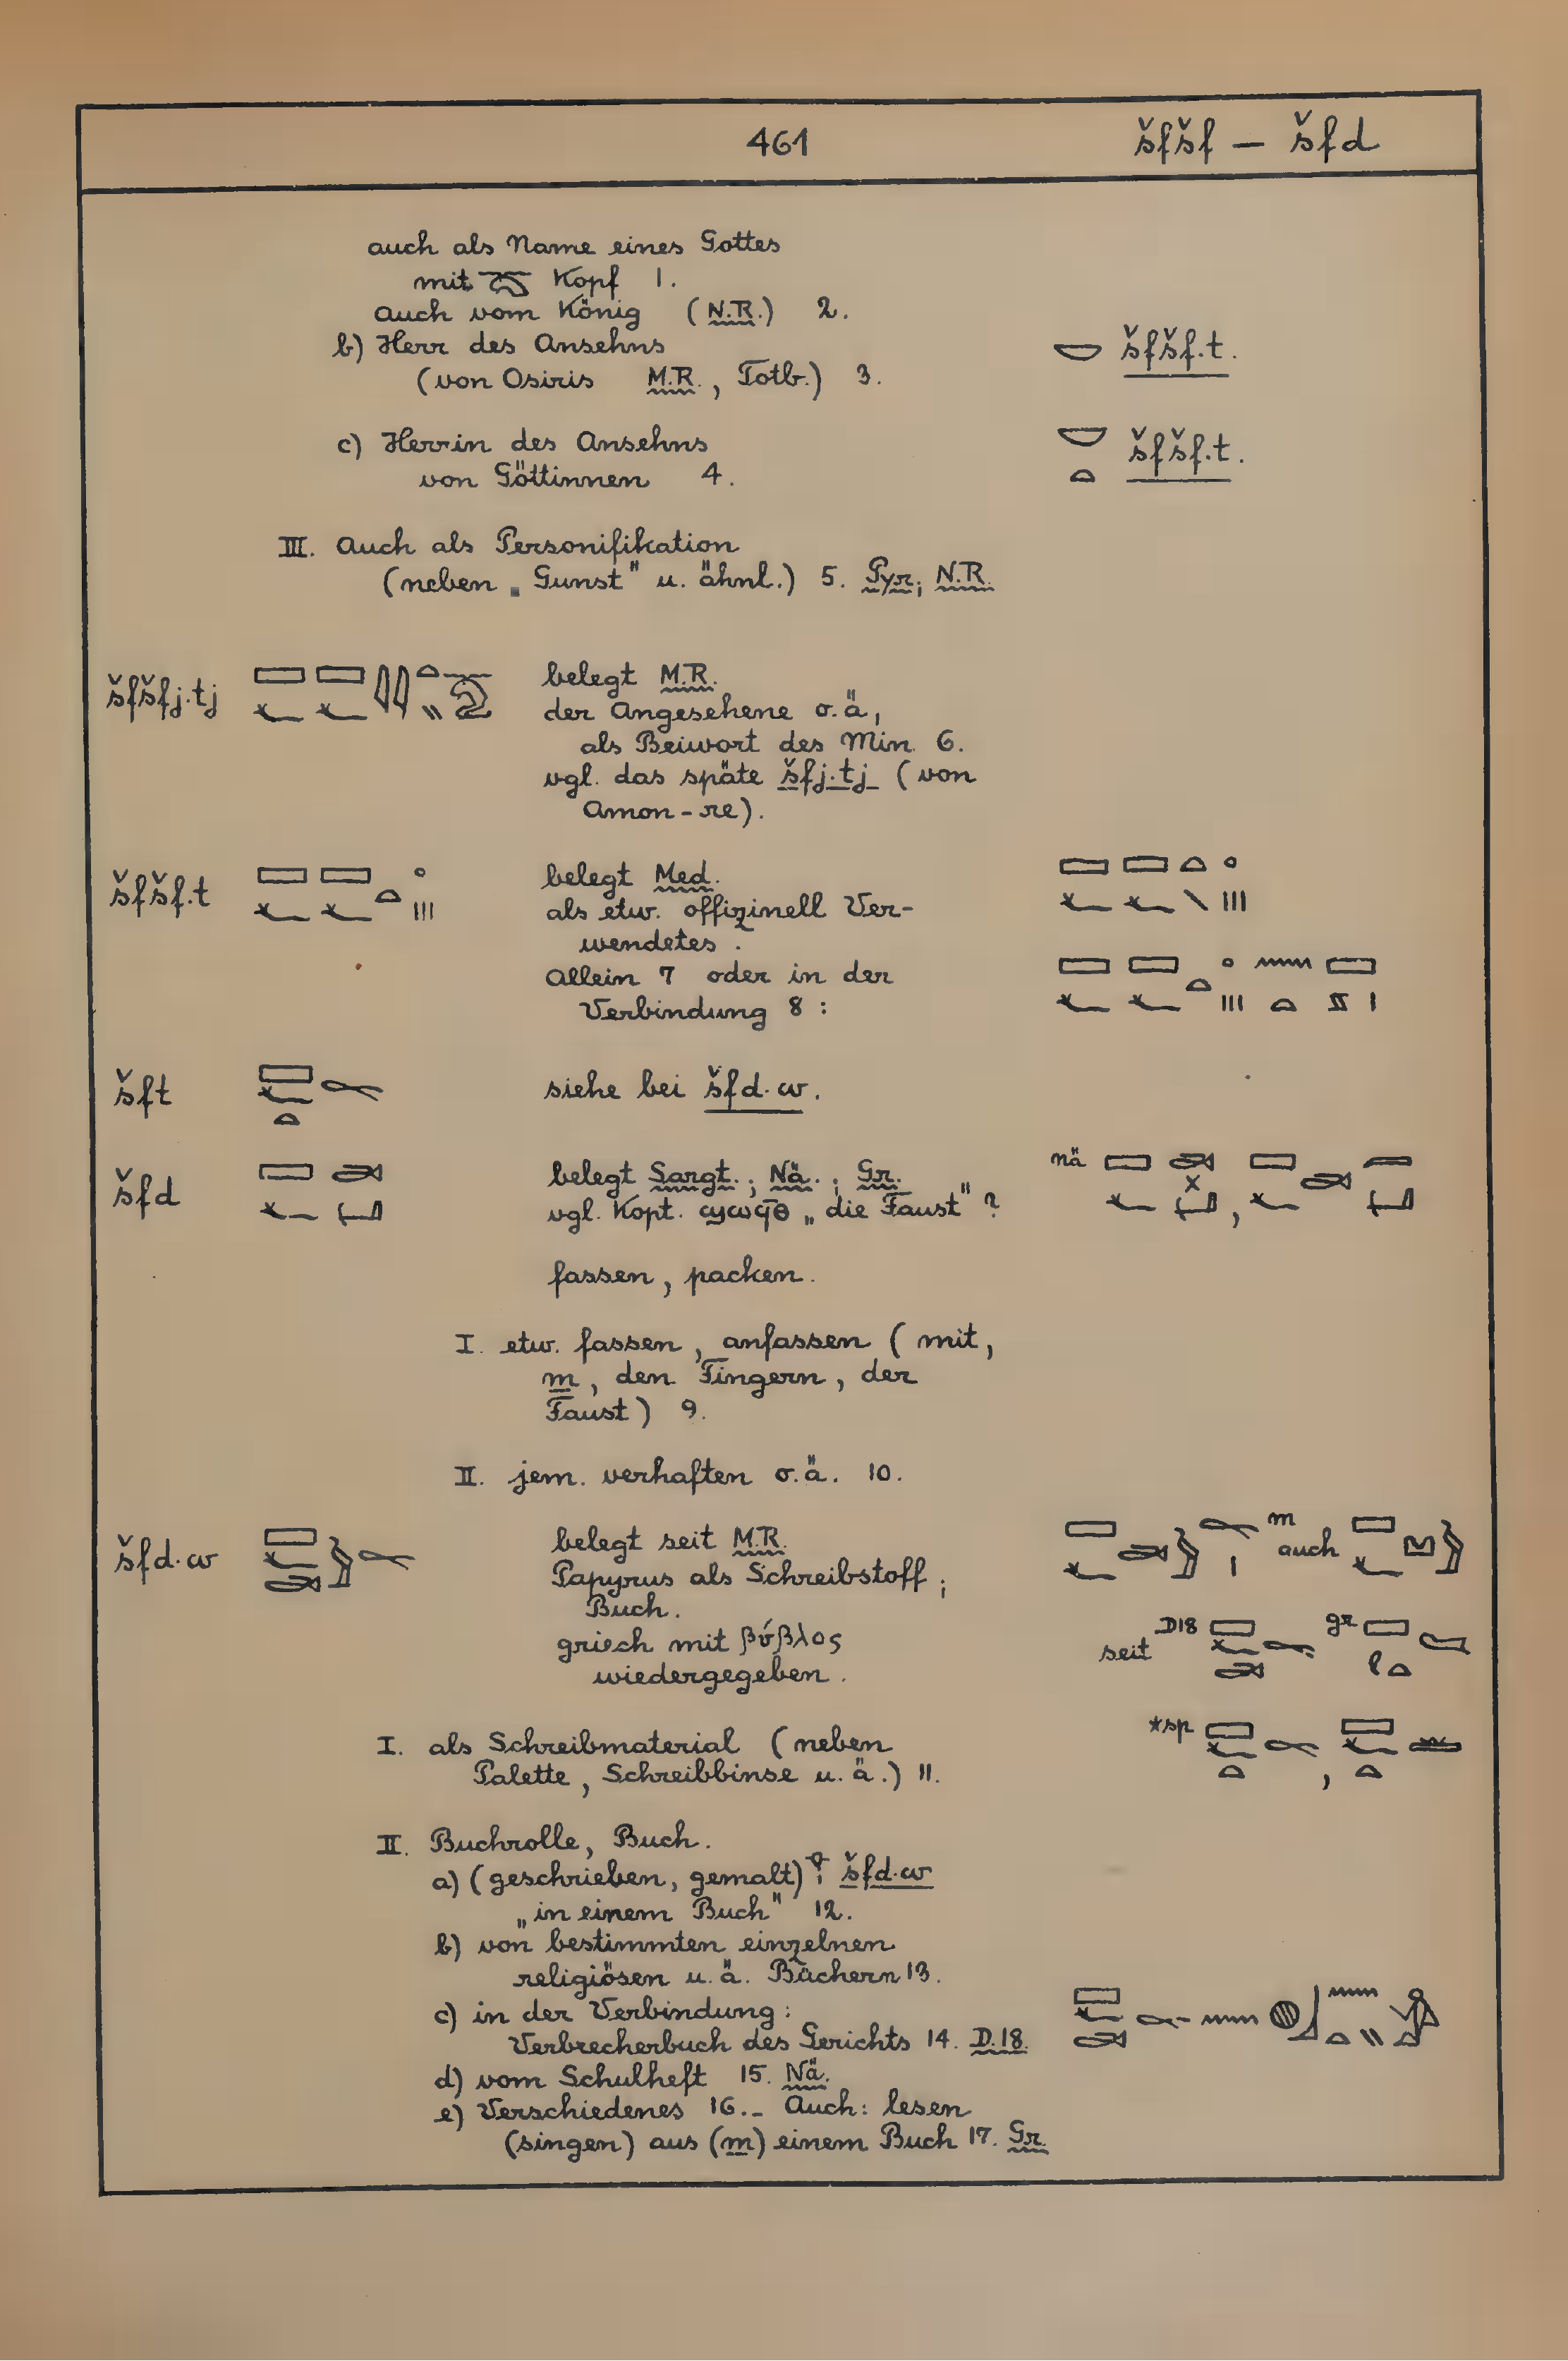 461 šfšf — šfd
auch als Name eines Gottes
mit Kopf 1.
auch vom König (N.R.) 2.
b) Herr des Ansehns
(von Osiris M.R., Totb.) 3. šfšf.t.
c) Herrin des Ansehns
von Göttinnen 4. šfšf.t.
III. Auch als Personifikation
(neben „Gunst" u. ähnl.) 5. Pyr; N.R.
šfšfj.tj belegt M.R.
der Angesehene o.ä,
als Beiwort des Min. 6.
vgl. das späte šfj.tj (von
Amon-re).
šfšf.t belegt Med.
als etw. offizinell Ver-
wendetes.
Allein 7 oder in der
Verbindung 8:
šft siehe bei šfd.w.
šfd belegt Sargt.; Nä.; Gr. nä
vgl. Kopt. „die Faust"?
fassen, packen.
I. etw. fassen, anfassen (mit,
m, den Fingern, der
Faust) 9.
II. jem. verhaften o.ä. 10.
šfd.w belegt seit M.R. m auch
Papyrus als Schreibstoff;
Buch.
griech mit βύβλος seit D18 gr
wiedergegeben.
I. als Schreibmaterial (neben *sp
Palette, Schreibbinse u.ä.) 11.
II. Buchrolle, Buch.
a) (geschrieben, gemalt) šfd.w
„in einem Buch" 12.
b) von bestimmten einzelnen
religiösen u.ä. Büchern 13.
c) in der Verbindung:
Verbrecherbuch des Gerichts 14. D.18.
d) vom Schulheft 15. Nä.
e) Verschiedenes 16.- Auch: lesen
(singen) aus (m) einem Buch 17. Gr.